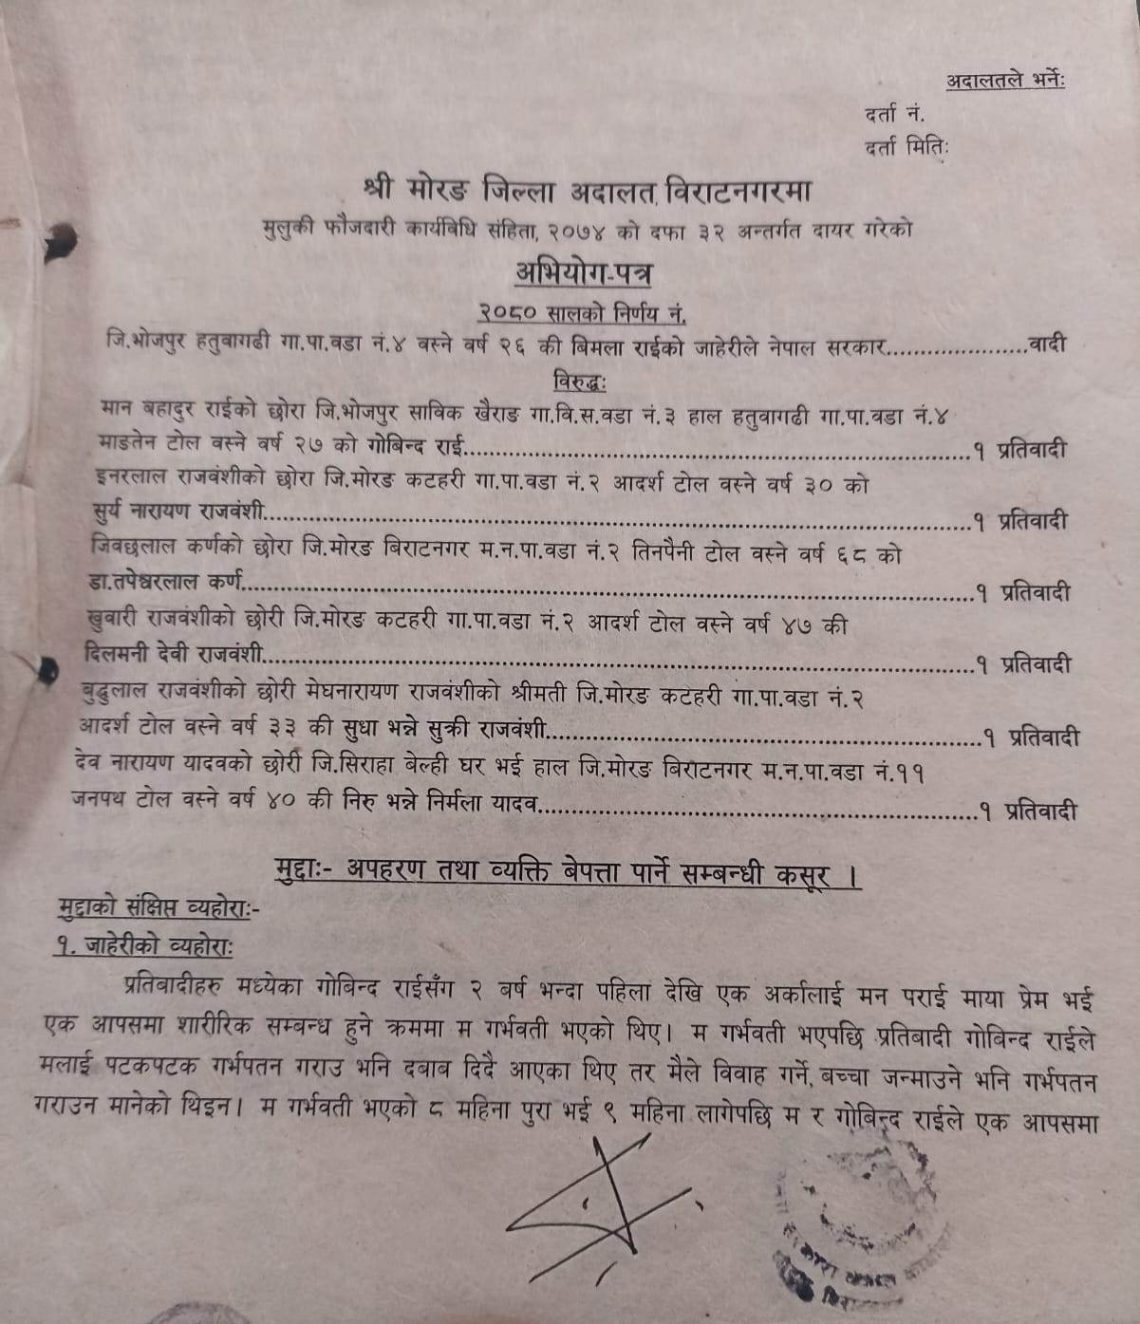 अदालतले भर्नेः
दर्ता नं.
दर्ता मितिः
श्री मोरङ जिल्ला अदालत विराटनगरमा
मुलुकी फौजदारी कार्यविधि संहिता, २०७४ को दफा ३२ अन्तर्गत दायर गरेको
अभियोग-पत्र
२०८० सालको निर्णय नं.
जि.भोजपुर हतुवागढी गा.पा.वडा नं.४ वस्ने वर्ष २६ की बिमला राईको जाहेरीले नेपाल सरकार.....................वादी
विरुद्धः
मान बहादुर राईको छोरा जि.भोजपुर साविक खैराङ गा.वि.स.वडा नं.३ हाल हतुवागढी गा.पा.वडा नं.४
माङतेन टोल वस्ने वर्ष २७ को गोबिन्द राई...............................................................................१ प्रतिवादी
इनरलाल राजवंशीको छोरा जि.मोरङ कटहरी गा.पा.वडा नं.२ आदर्श टोल वस्ने वर्ष ३० को
सुर्य नारायण राजवंशी...............................................................................१ प्रतिवादी
जिवछलाल कर्णको छोरा जि.मोरङ बिराटनगर म.न.पा.वडा नं.२ तिनपैनी टोल वस्ने वर्ष ६८ को
डा.तपेश्वरलाल कर्ण...............................................................................१ प्रतिवादी
खुवारी राजवंशीको छोरी जि.मोरङ कटहरी गा.पा.वडा नं.२ आदर्श टोल वस्ने वर्ष ४७ की
दिलमनी देवी राजवंशी...............................................................................१ प्रतिवादी
बुद्धुलाल राजवंशीको छोरी मेघनारायण राजवंशीको श्रीमती जि.मोरङ कटहरी गा.पा.वडा नं.२
आदर्श टोल वस्ने वर्ष ३३ की सुधा भन्ने सुक्री राजवंशी......................................................१ प्रतिवादी
देव नारायण यादवको छोरी जि.सिराहा बेल्ही घर भई हाल जि.मोरङ बिराटनगर म.न.पा.वडा नं.११
जनपथ टोल वस्ने वर्ष ४० की निरु भन्ने निर्मला यादव......................................................१ प्रतिवादी
मुद्दाः- अपहरण तथा व्यक्ति बेपत्ता पार्ने सम्बन्धी कसूर ।
मुद्दाको संक्षिप्त व्यहोराः-
१. जाहेरीको व्यहोराः
प्रतिबादीहरु मध्येका गोबिन्द राईसँग २ बर्ष भन्दा पहिला देखि एक अर्कालाई मन पराई माया प्रेम भई
एक आपसमा शारीरिक सम्बन्ध हुने क्रममा म गर्भवती भएको थिए। म गर्भवती भएपछि प्रतिबादी गोबिन्द राईले
मलाई पटकपटक गर्भपतन गराउ भनि दबाब दिदै आएका थिए तर मैले विवाह गर्ने, बच्चा जन्माउने भनि गर्भपतन
गराउन मानेको थिइन। म गर्भवती भएको ८ महिना पुरा भई ९ महिना लागेपछि म र गोबिन्द राईले एक आपसमा